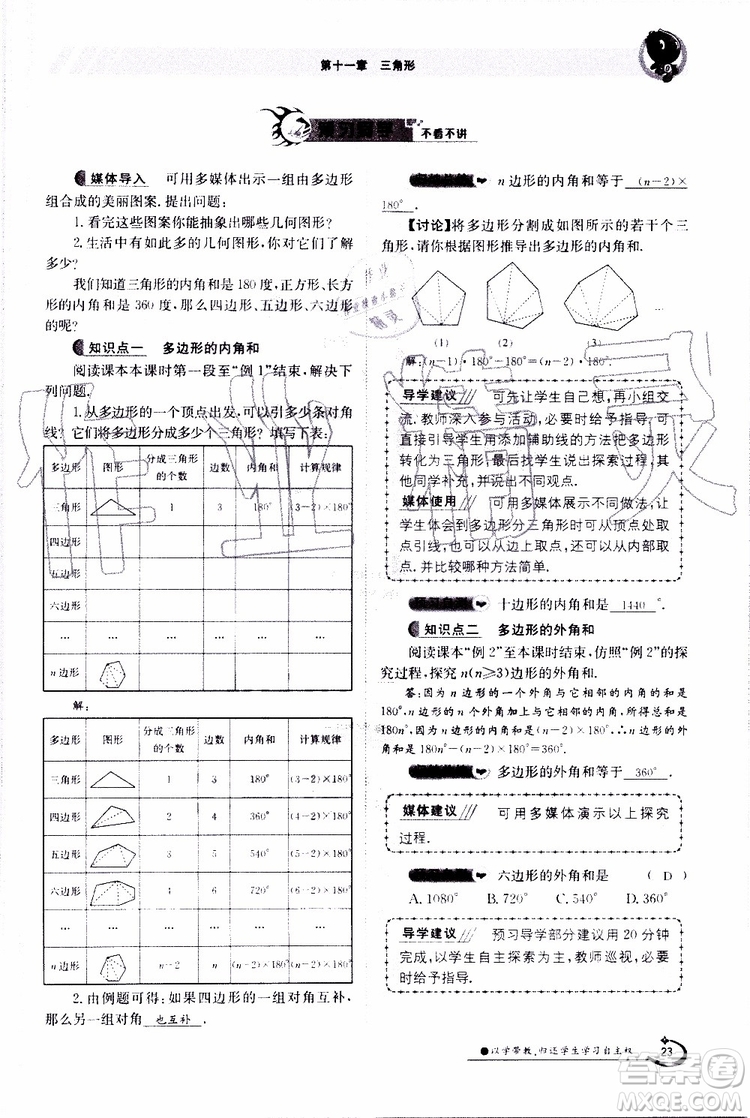 第十一章　三角形
不看不讲
媒体导入　可用多媒体出示一组由多边形
组合成的美丽图案.提出问题:
1.看完这些图案你能抽象出哪些几何图形?
2.生活中有如此多的几何图形,你对它们了解
多少?
我们知道三角形的内角和是180度,正方形、长方
形的内角和是360度,那么四边形、五边形、六边形
的呢?
知识点一　多边形的内角和
阅读课本本课时第一段至“例1”结束,解决下
列问题.
1.从多边形的一个顶点出发,可以引多少条对角
线?它们将多边形分成多少个三角形?填写下表:
多边形　图形　分成三角形的个数　边数　内角和　计算规律
三角形　1　3　180°　(3-2)×180°
四边形
五边形
六边形
…　…　…　…　…　…
n边形
解:
多边形　图形　分成三角形的个数　边数　内角和　计算规律
三角形　1　3　180°　(3-2)×180°
四边形　2　4　360°　(4-2)×180°
五边形　3　5　540°　(5-2)×180°
六边形　4　6　720°　(6-2)×180°
…　…　…　…　…　…
n边形　n-2　n　(n-2)×180°　(n-2)×180°
2.由例题可得:如果四边形的一组对角互补,
那么另一组对角 也互补 .
n边形的内角和等于 (n-2)×
180° .
【讨论】将多边形分割成如图所示的若干个三
角形,请你根据图形推导出多边形的内角和.
(1)　(2)　(3)
解:(n-1)·180°-180°=(n-2)·180°.
导学建议　可先让学生自己想,再小组交
流.教师深入参与活动,必要时给予指导.可
直接引导学生运用添加辅助线的方法把多边形
转化为三角形.最后学生说出探索过程,其
他同学补充,并讲出不同观点.
媒体使用　可用多媒体展示不同做法,让
学生体会到多边形分三角形时可从顶点处取
点引线,也可从边上取点,还可从内部取点.
比较何种方法简单.
十边形的内角和是 1440 °.
知识点二　多边形的外角和
阅读课本“例2”至本课时结束,仿照“例2”的探
究过程,探究n(n≥3)边形的外角和.
答:因为n边形的一个外角与它相邻的内角的和是
180°,n边形的内角和加上与它相邻的内角和,所得总和是
180°×n,因为n边形的内角和是(n-2)·180°,∴n边形的外
角和是n·180°-(n-2)×180°=360°.
多边形的外角和等于 360° .
媒体建议　可用多媒体演示以上探究
过程.
六边形的外角和是　( D )
A.1080°　B.720°　C.540°　D.360°
导学建议　预习导学部分建议用20分钟
完成,以学生自主探索为主,教师巡视,必要
时给予指导.
●以学带教,归还学生学习自主权
23
答案圈
MXQE.COM